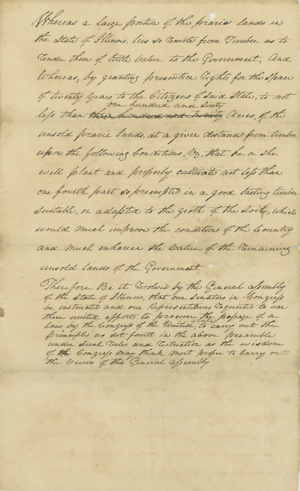 Whereas a large portion of the prairie lands in
the State of Illinois, lies so remote from Timber as to
render them of little value to the Government, And
Whereas, by granting preemtion rights for the space
of twenty years to the Citizens of said State, to not
one hundred and sixty
less than three hundred and twenty Acres of the
unsold prairie lands at a given distance from timber
upon the following Conditions, viz, that he or she
will plant and properly cultivate not less than
one fourth part so preempted in a good lasting timber
suitable, or adapted to the groth of the soil, which
would much improve the condition of the Country
and much enhance the value of the remaining
unsold lands of the Government
Therefore Be it resolved by the General assembly
of the State of Illinois, that our Senators in Congress
be instructed and our Representatives requested to use
their united efforts to procure the passage of a
Law by the Congress of the United, to carry out the
principles as set fourth in the above preamble
under such rules and restriction as the wisdom
of the Congress may think most proper to carry out
the views of this General assembly